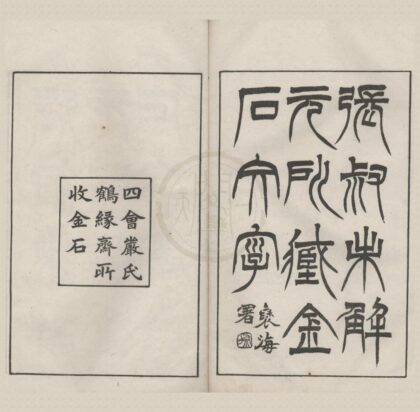 張叔未解
元所藏金
石文字
褱海
署
四會嚴氏
鶴緣齋所
收金石